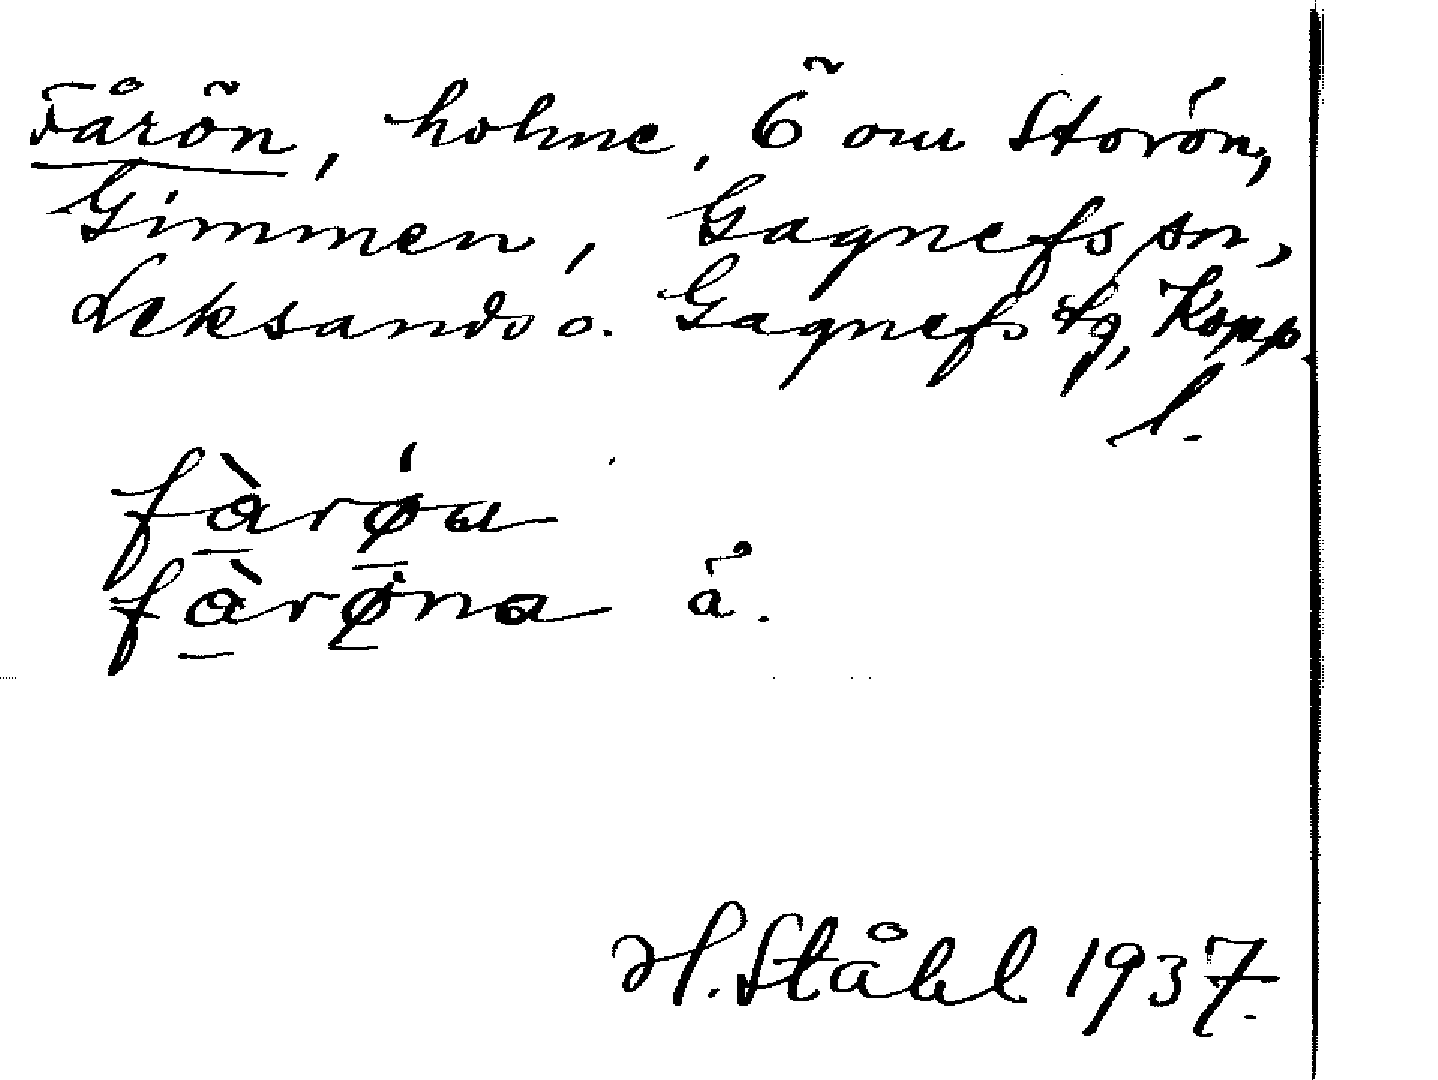 Fårön, holme, Ö om Storön,
Gimmen, Gagnefs sn,
Leksands o. Gagnefs tg, Kopp.
l.
fàrø̀n
fàrø̀na å.
H. Ståhl 1937.